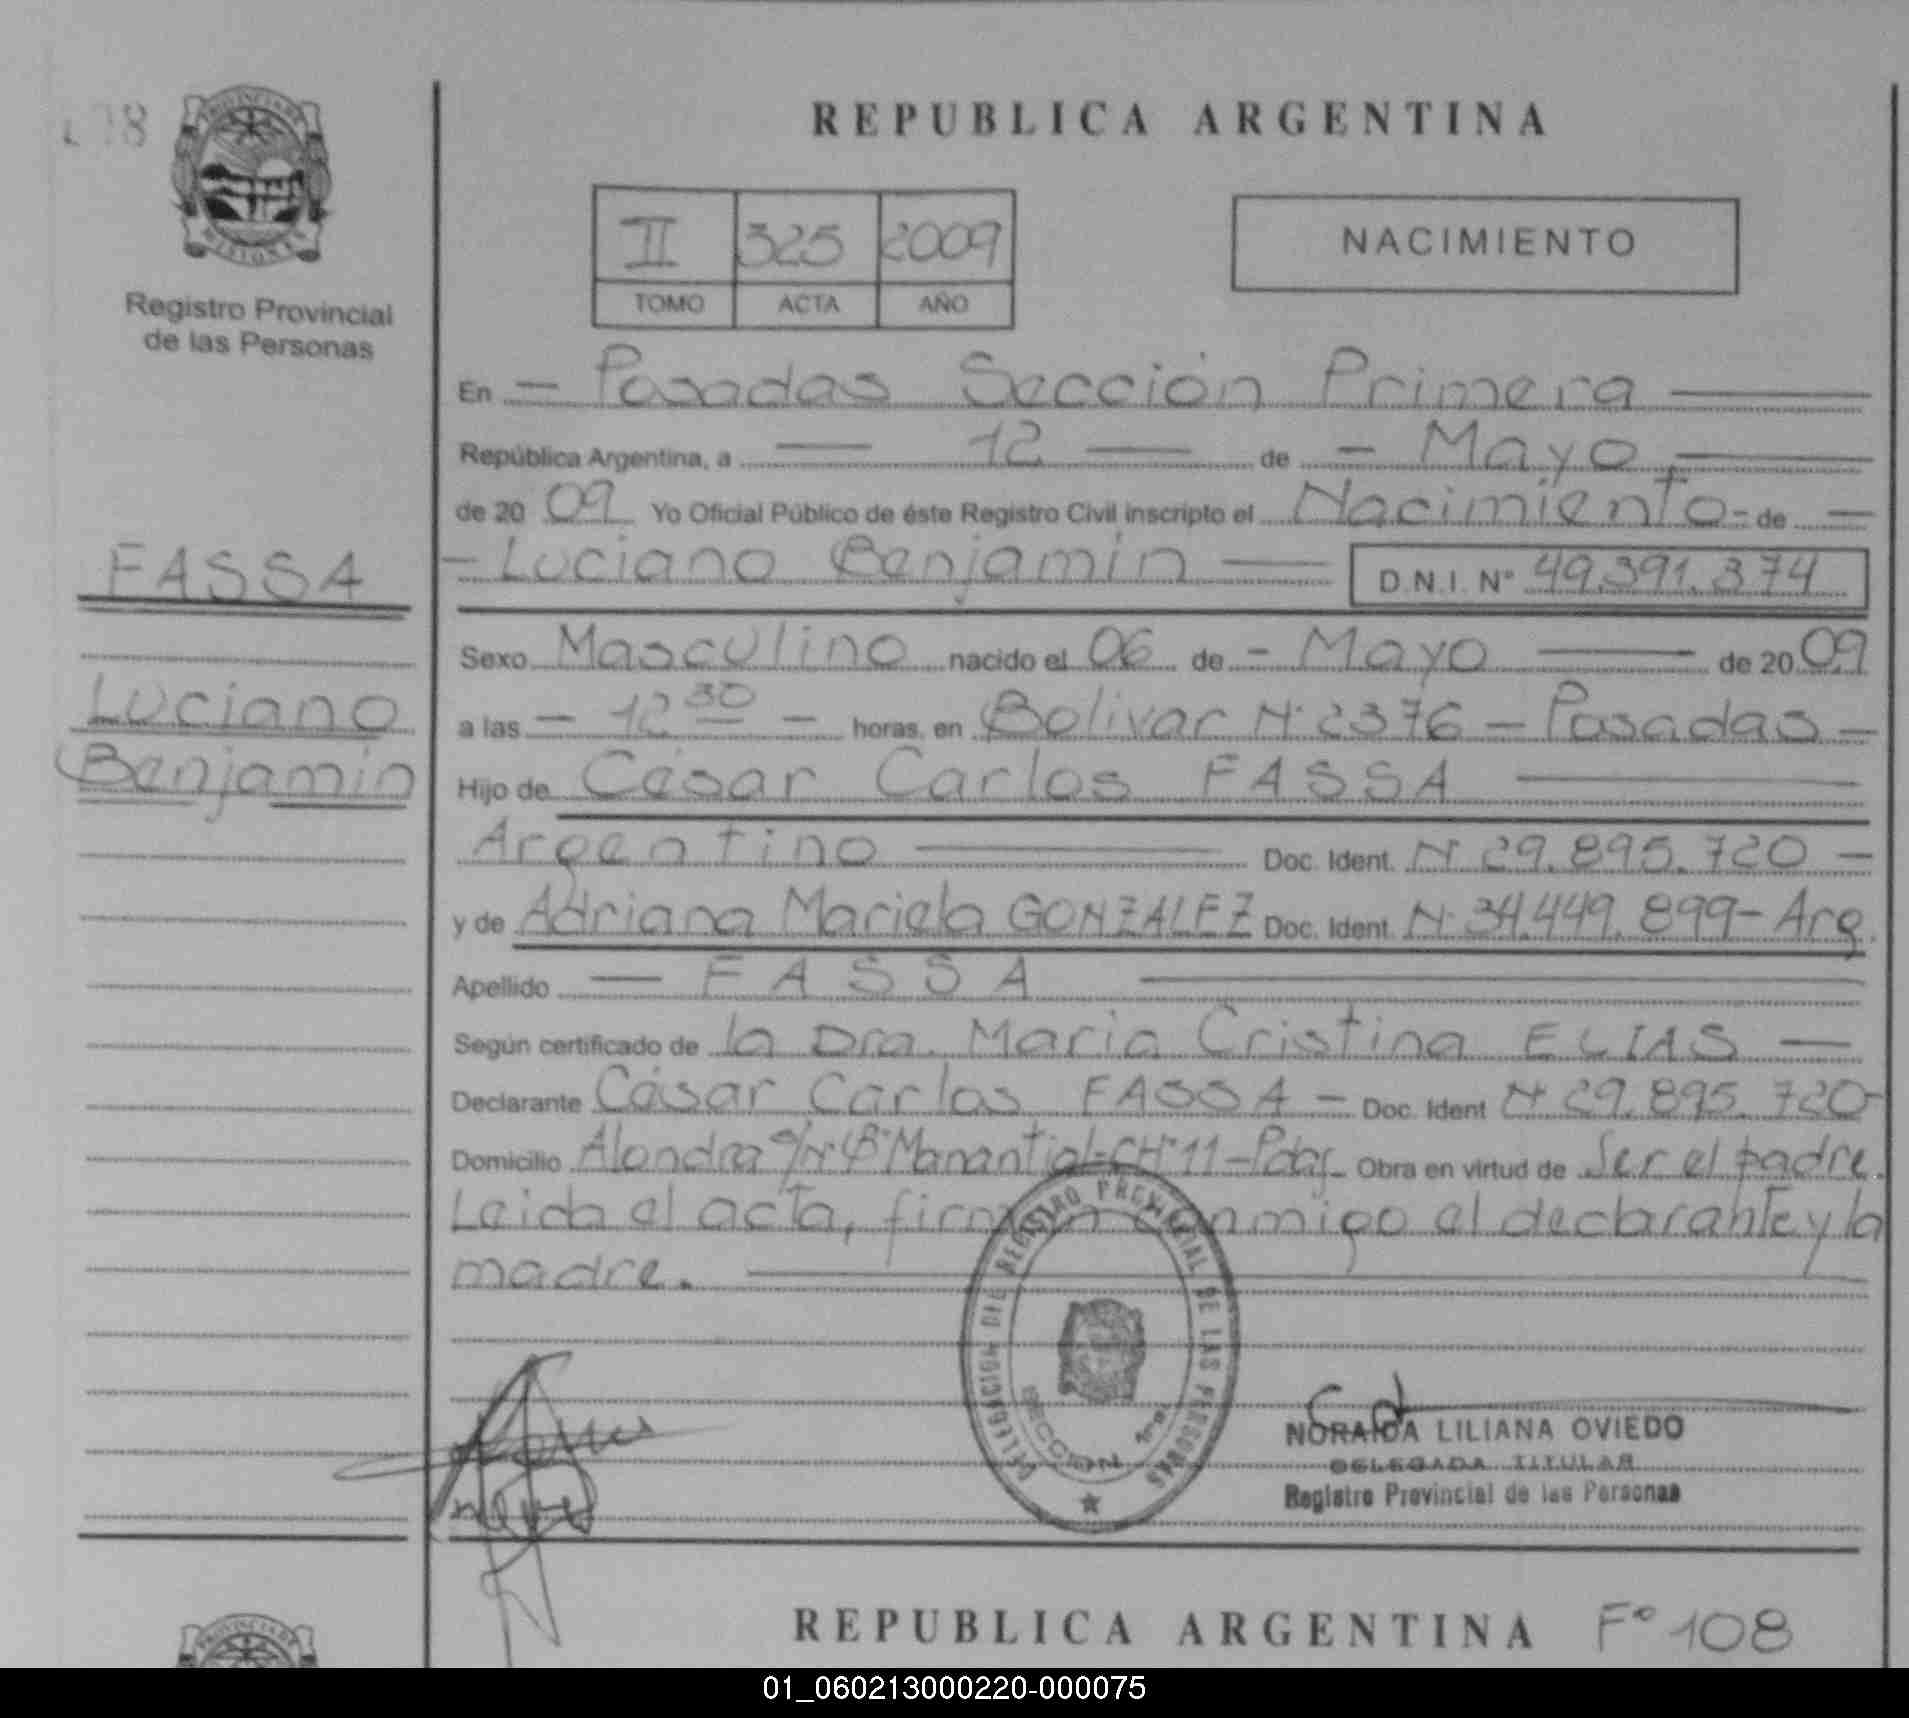 PROVINCIA DE
MISIONES
Registro Provincial
de las Personas
FASSA
Luciano
Benjamin
REPUBLICA ARGENTINA
II 325 2009
TOMO ACTA AÑO
NACIMIENTO
En — Posadas Sección Primera —
República Argentina, a — 12 — de — Mayo —
de 20 09 Yo Oficial Público de éste Registro Civil inscripto el Nacimiento - de —
— Luciano Benjamin — D.N.I. Nº 49.391.374
Sexo Masculino nacido el 06 de — Mayo — de 20 09
a las — 12 30 — horas, en Bolivar Nº 2376 — Posadas —
Hijo de César Carlos FASSA —
Argentino — Doc. Ident. Nº 29.895.720 —
y de Adriana Mariela GONZALEZ Doc. Ident. Nº 34.449.899 - Arg.
Apellido — FASSA —
Según certificado de la Dra. Maria Cristina ELIAS —
Declarante César Carlos FASSA — Doc. Ident Nº 29.895.720-
Domicilio Alondra s/Nº Bº Manantial - CHº 11 - Pdas - Obra en virtud de Ser el padre.
Leida el acta, firman conmigo el declarante y la
madre. —
DELEGACION DEL REGISTRO PROVINCIAL DE LAS PERSONAS
SECCION 1ra.
NORAIDA LILIANA OVIEDO
DELEGADA TITULAR
Registro Provincial de las Personas
PROVINCIA DE
REPUBLICA ARGENTINA Fº 108
01_060213000220-000075